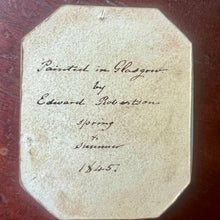 Painted in Glasgow
by
Edward Robertson
Spring
&
Summer
1845.